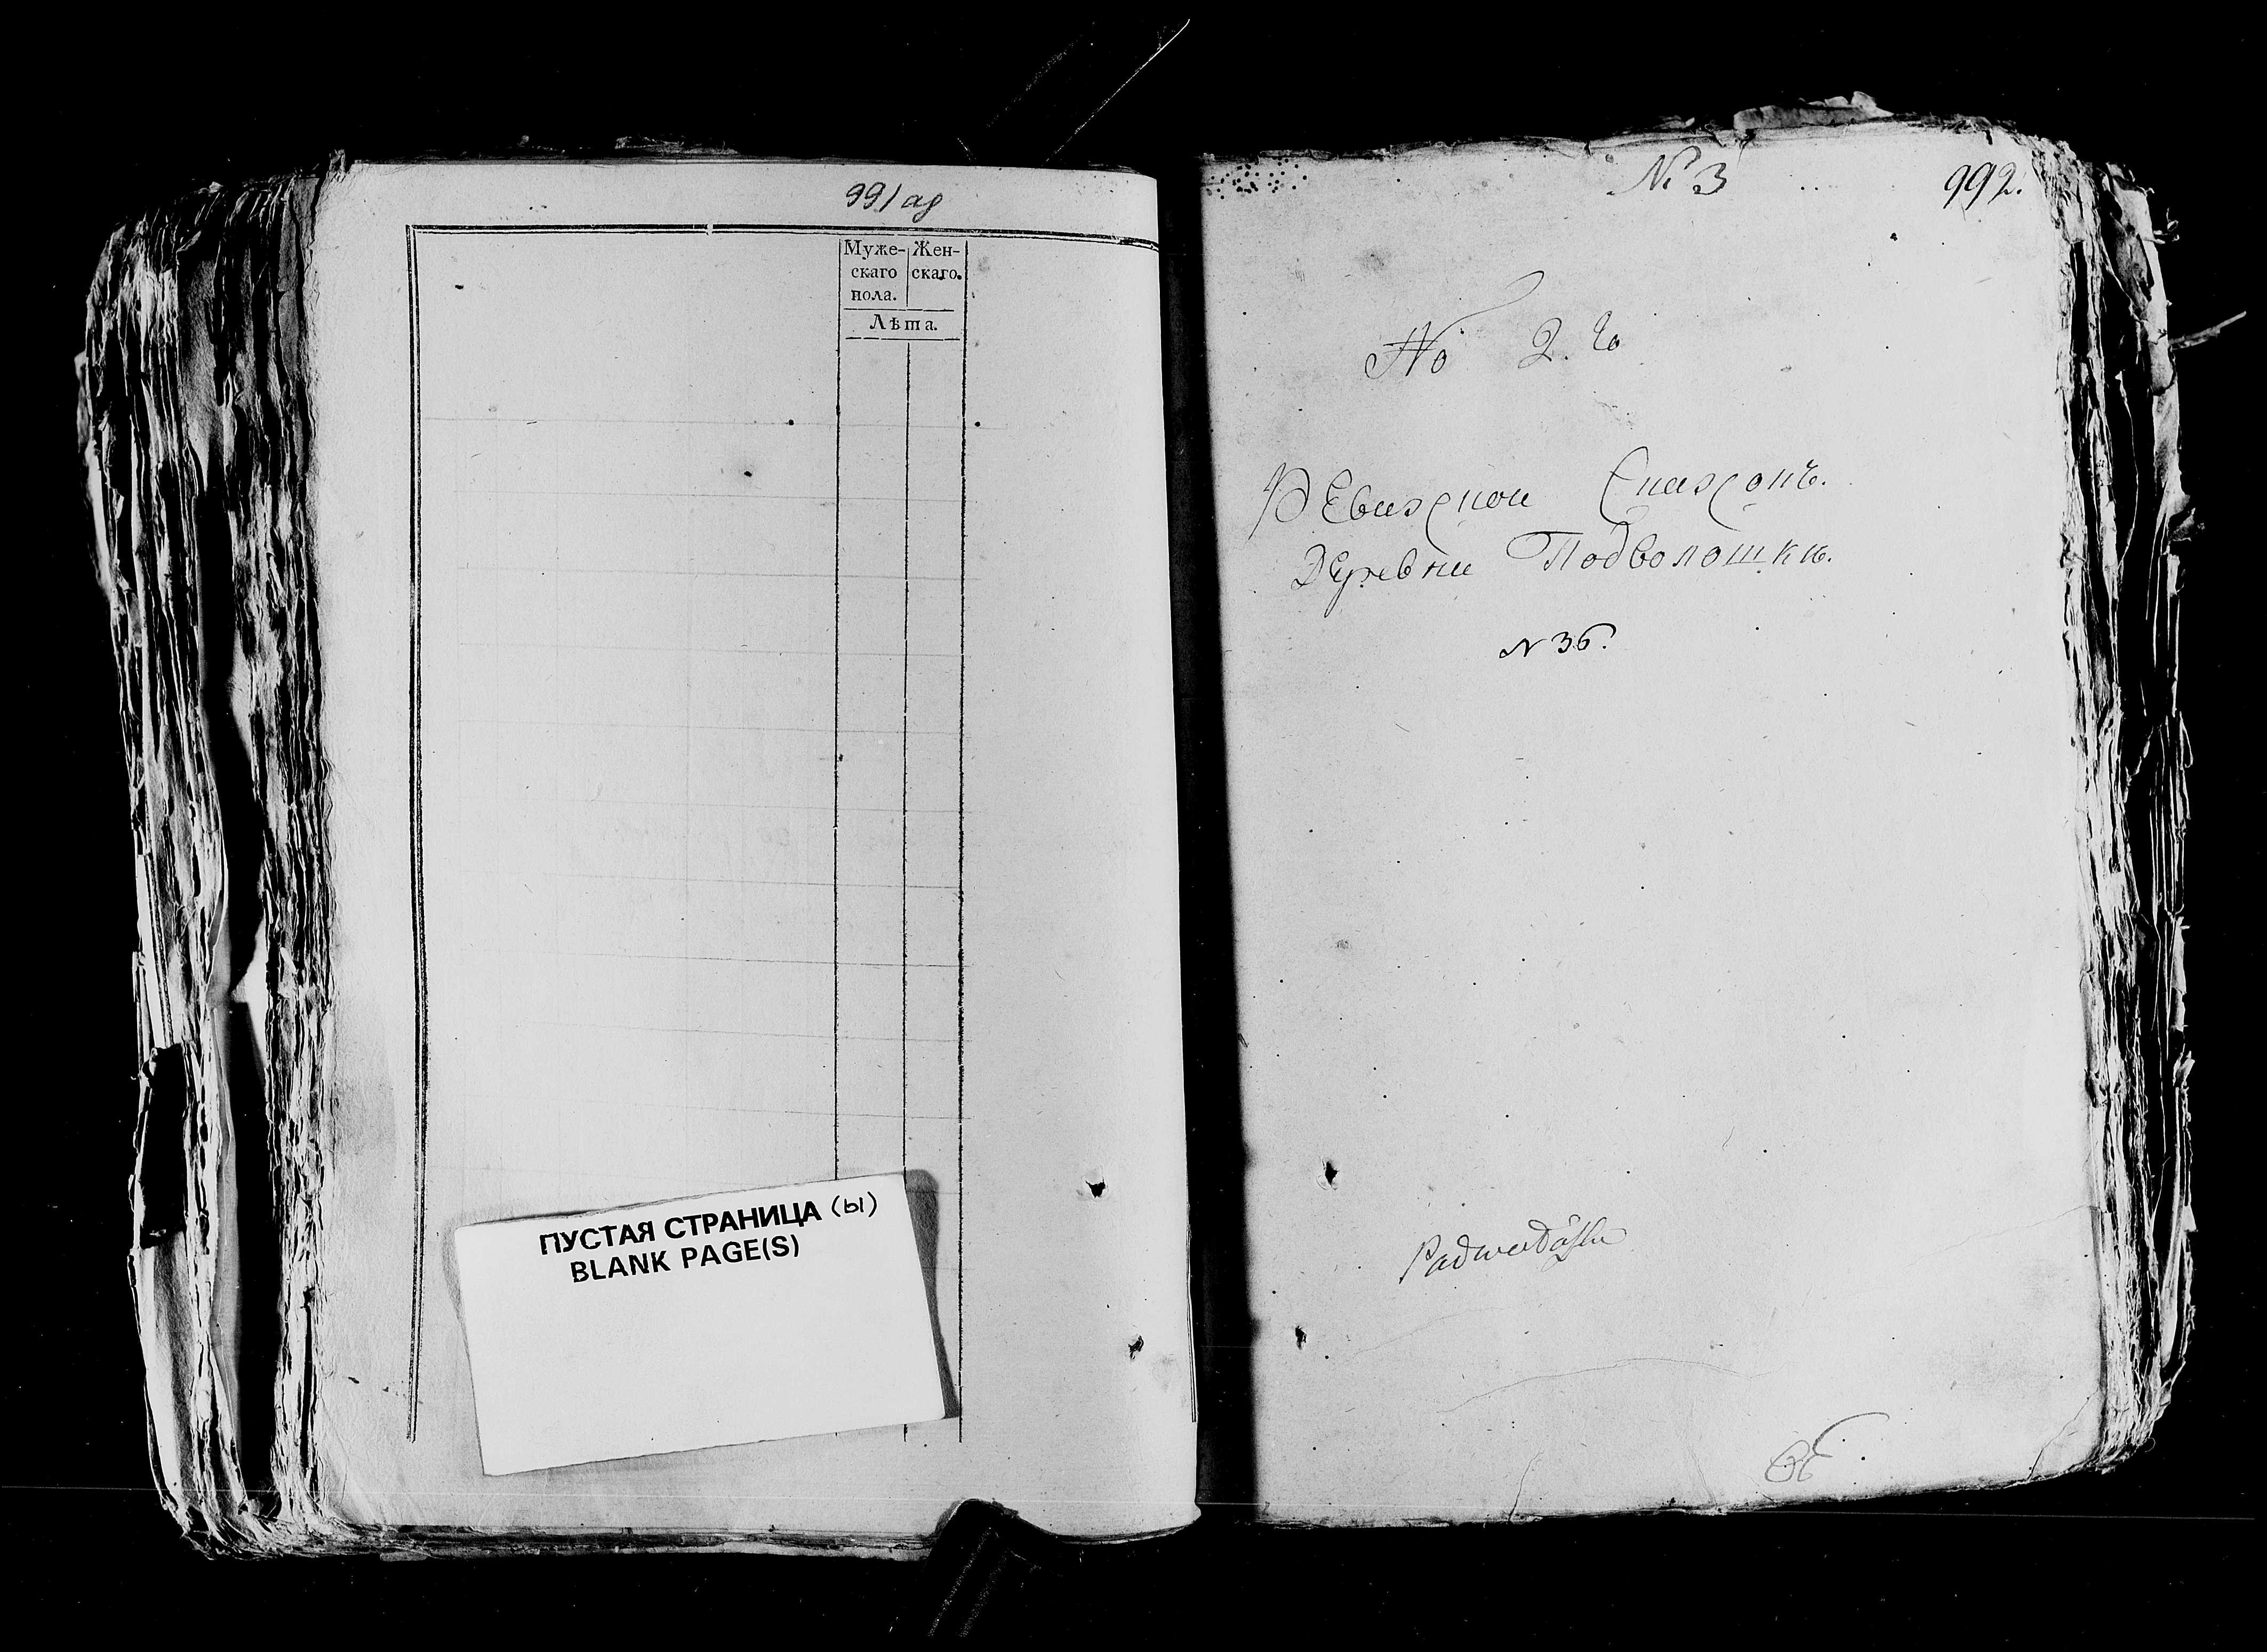 991 об
Муже- Жен-
скаго скаго.
пола.
Лѣта.
ПУСТАЯ СТРАНИЦА (ы)
BLANK PAGE(S)
№ 3
992.
№ 2. го
Ревизской Списокъ.
Деревни Подволошки.
№ 36.